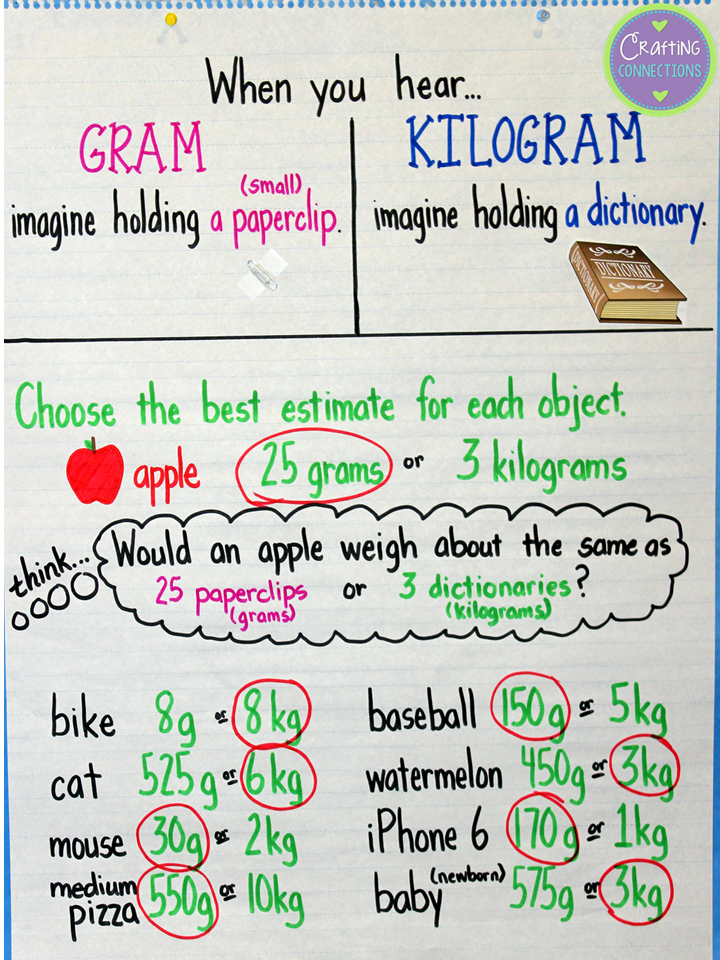 CRAFTING
CONNECTIONS
When you hear...
GRAM
(small)
imagine holding a paperclip.
KILOGRAM
imagine holding a dictionary.
DICTIONARY
DICTIONARY
Choose the best estimate for each object.
apple 25 grams or 3 kilograms
think...
Would an apple weigh about the same as
25 paperclips or 3 dictionaries?
(grams) (kilograms)
bike 8g or 8kg
cat 525g or 6kg
mouse 30g or 2kg
medium
pizza 550g or 10kg
baseball 150g or 5kg
watermelon 450g or 3kg
iPhone 6 170g or 1kg
baby (newborn) 575g or 3kg